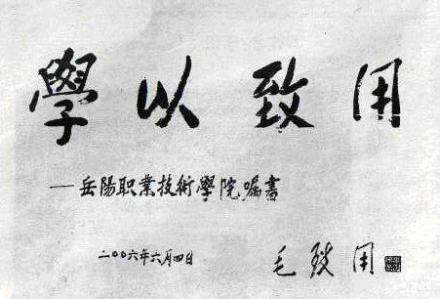 學以致用
—岳陽职業技術學院嘱書
二00六年六月四日
毛致用